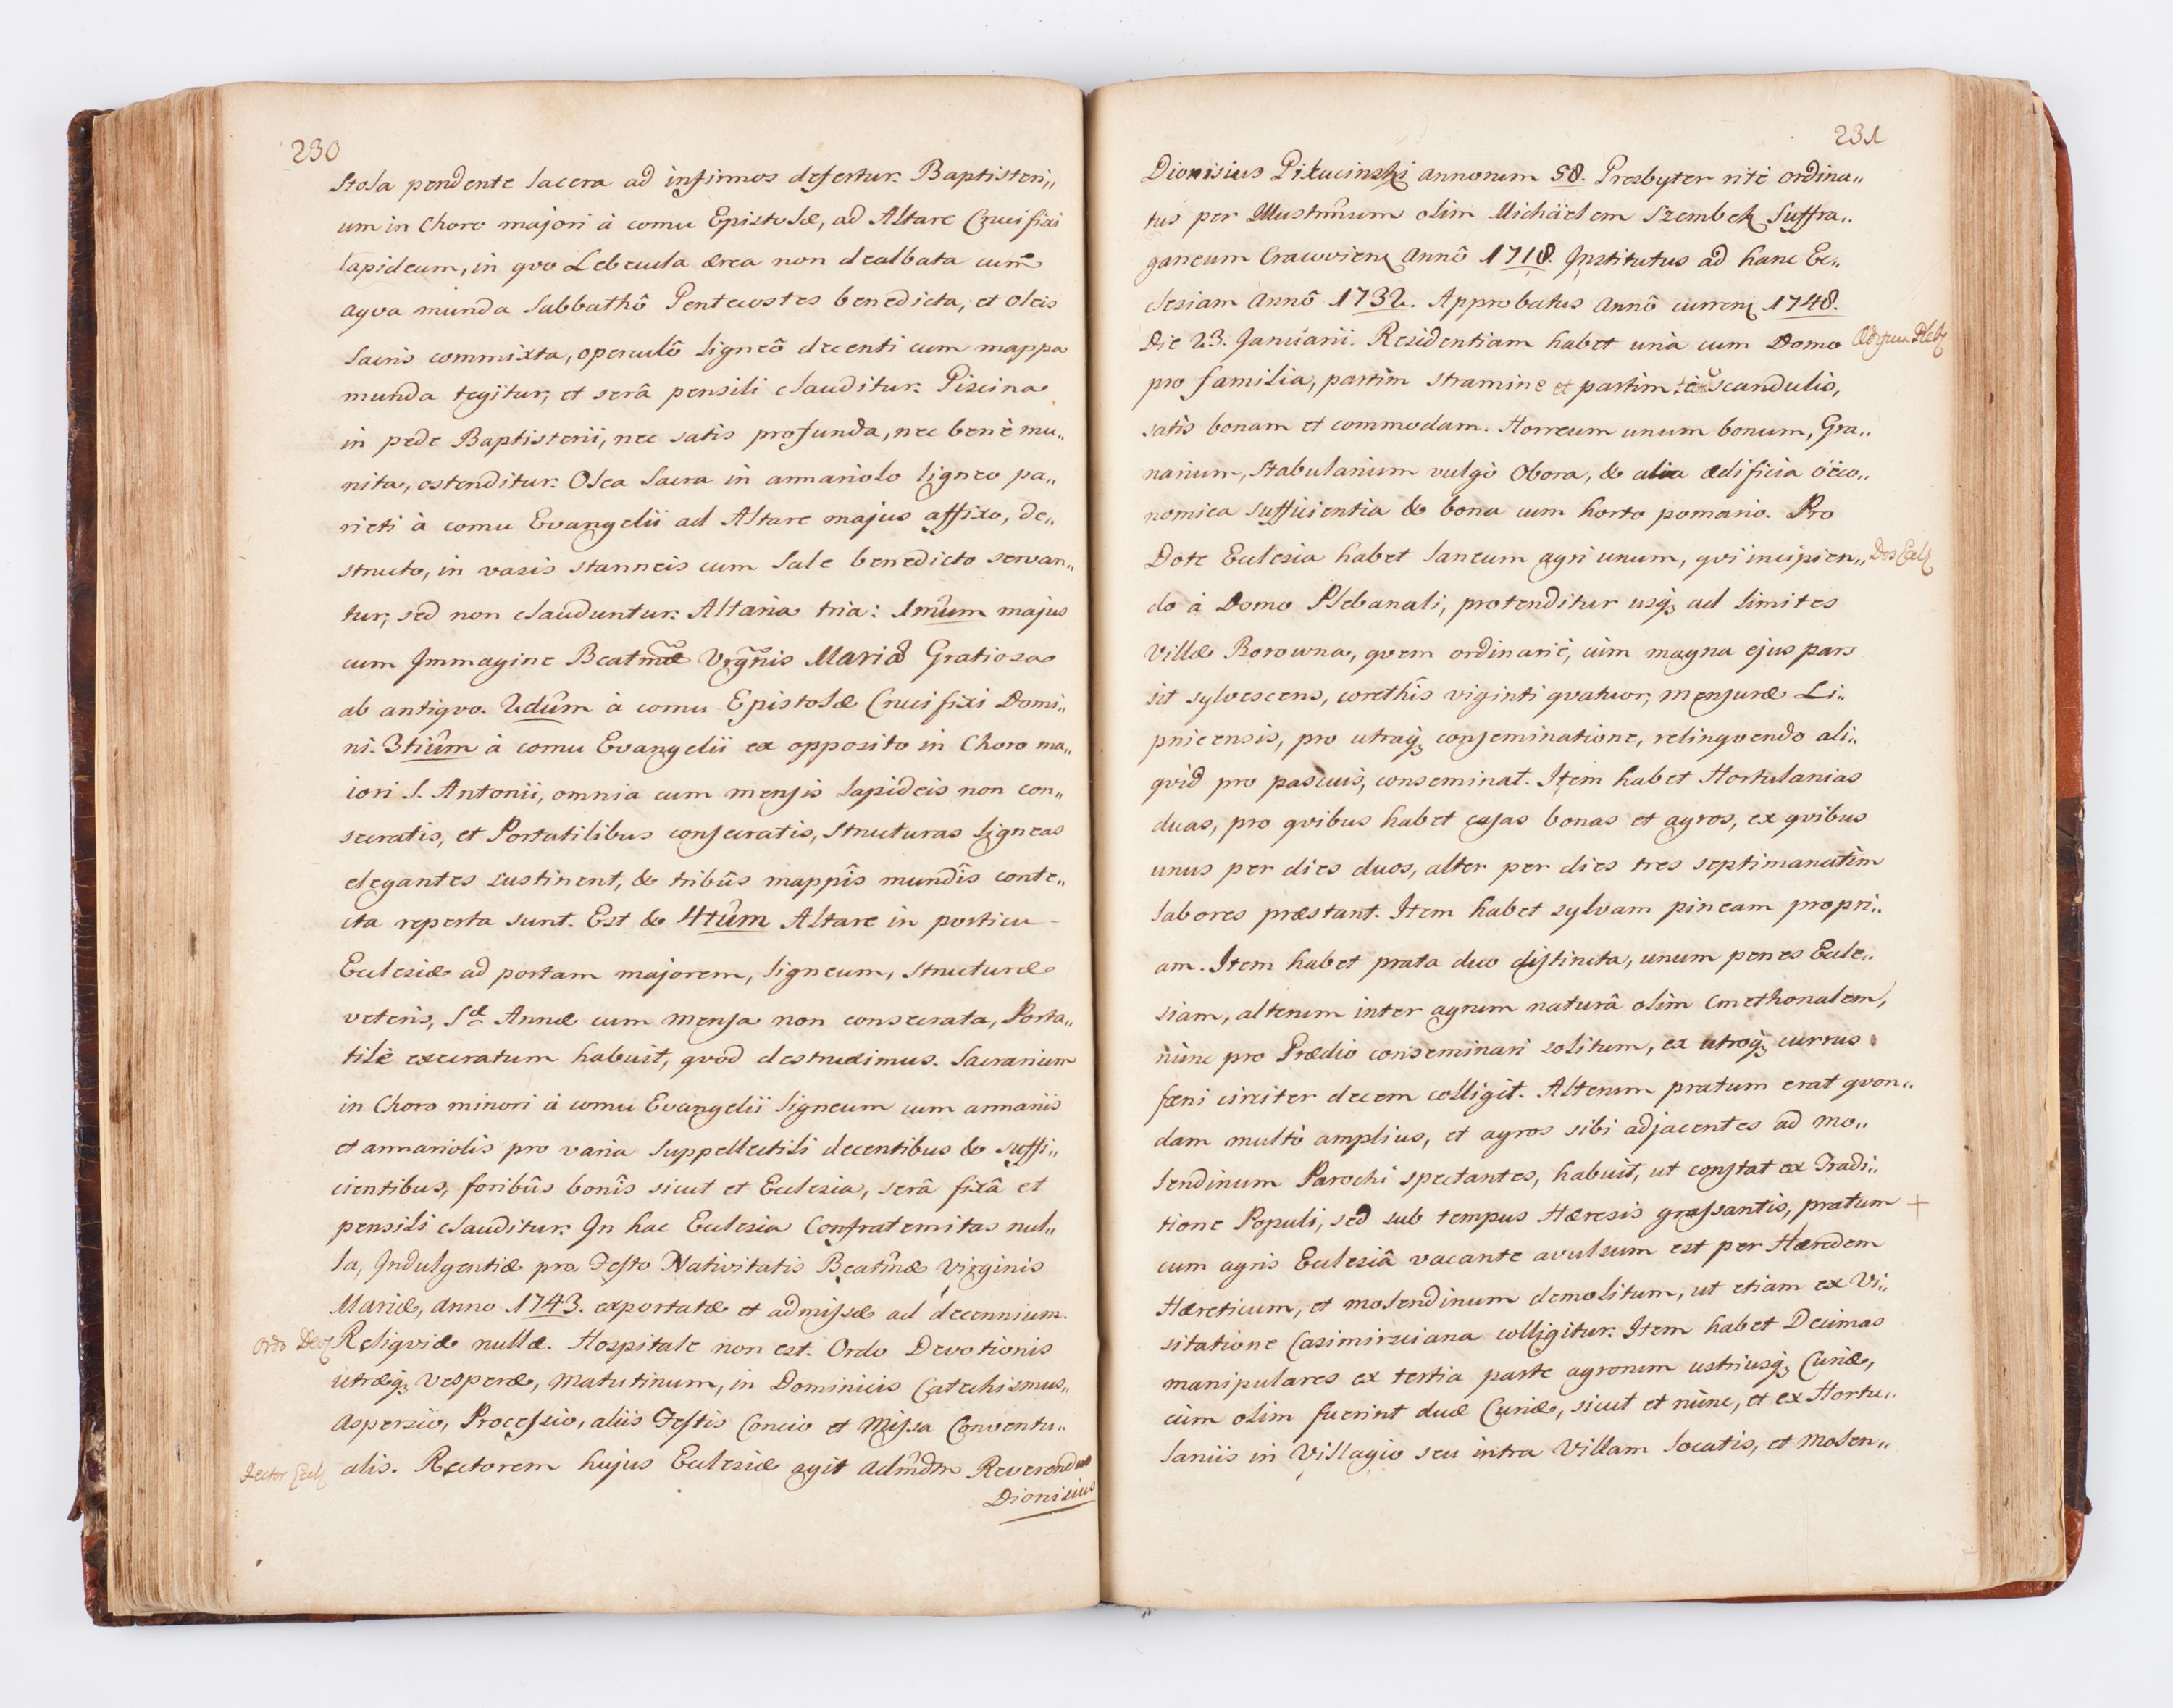 230
Stola pendente lacera ad infirmos defertur. Baptisteri,,
um in Choro majori à cornu Epistolæ, ad Altare Crucifixi
lapideum, in qvo Lebecula ærea non dealbata cum
aqva munda Sabbathô Pentecostes benedicta, et Oleis
Sacris commixta, operculô ligneô decenti cum mappa
munda tegitur, et serâ pensili clauditur. Piscina
in pede Baptisterii, nec satis profunda, nec benè mu,,
nita, ostenditur. Olea Sacra in armariolo ligneo pa,,
rieti à cornu Evangelii ad Altare majus affixo, de,,
structo, in vasis stanneis cum Sale benedicto servan,,
tur, sed non clauduntur. Altaria tria: 1mûm majus
cum Jmmagine Beatmæ Vrgnis Mariæ Gratiosa
ab antiqvo. 2dûm à cornu Epistolæ Crucifixi Domi,,
ni. 3tiûm à cornu Evangelii ex opposito in Choro ma,,
iori S. Antonii, omnia cum mensis lapideis non con,,
secratis, et Portatilibus consecratis, structuras ligneas
elegantes sustinent, & tribûs mappîs mundîs conte,,
cta reperta sunt. Est & 4tûm Altare in porticu
Ecclesiæ ad portam majorem, ligneum, structuræ
veteris, Sæ Annæ cum mensa non consecrata, Porta,,
tilè execratum habuit, qvod destruximus. Sacrarium
in Choro minori à cornu Evangelii ligneum cum armariis
et armariolis pro varia Suppellectili decentibus & suffi,,
cientibus, foribûs bonîs sicut et Ecclesia, serâ fixâ et
pensili clauditur. Jn hac Ecclesia Confraternitas nul,,
la, Jndulgentiæ pro Festo Nativitatis Beatmæ Virginis
Mariæ, Anno 1743. exportatæ et admissæ ad decennium.
Ordo Devo
Reliqviæ nullæ. Hospitale non est. Ordo Devotionis
utræq; Vesperæ, Matutinum, in Dominicis Catechismus,,
Aspersio, Processio, aliis Festis Concio et Missa Conventu,,
Rector Eccl
alis. Rectorem hujus Ecclesiæ agit Admdm Reverendus
Dionisius
231
Dionisius Pikucinski annorum 58. Presbyter ritè ordina,,
tus per Illustrmum olim Michäelem Szembek Suffra,,
ganeum Cracovien Annô 1718. Jnstitutus ad hanc Ec,,
clesiam Annô 1732. Approbatus Annô curren 1748.
Die 23. Januarii. Residentiam habet unà cum Domo
pro familia, partim stramine et partim scandulis,
satis bonam et commodam. Horreum unum bonum, Gra,,
narium, Stabularium vulgò Obora, & alia ædificia öëco,,
nomica sufficientia & bona cum horto pomario. Pro
Dote Ecclesia habet laneum agri unum, qvi incipien,,
Dos Eccl
do à Domo Plebanali, protenditur usq; ad limites
Villæ Borowna, qvem ordinariè, cùm magna ejus pars
sit sylvescens, corethîs viginti qvatuor, mensuræ Li,,
pnicensis, pro utraq; conseminatione, relinqvendo ali,,
qvid pro pascuis, conseminat. Item habet Hortulanias
duas, pro qvibus habet casas bonas et agros, ex qvibus
unus per dies duos, alter per dies tres septimanatim
labores præstant. Item habet sylvam pineam propri,,
am. Item habet prata duo distincta, unum penes Eccle,,
siam, alterum inter agrum naturâ olim Cmethonalem,
nùnc pro Prædio conseminari solitum, ex utroq; currus
fœni circiter decem colligit. Alterum pratum erat qvon,,
dam multò amplius, et agros sibi adjacentes ad mo,,
lendinum Parochi spectantes, habuit, ut constat ex Tradi,,
tione Populi, sed sub tempus Hæresis grassantis, pratum +
cum agris Ecclesiâ vacante avulsum est per Hæredem
Hæreticum, et molendinum demolitum, ut etiam ex Vi,,
sitatione Casimirsciana colligitur. Item habet Decimas
manipulares ex tertia parte agrorum utriusq; Curiæ,
cùm olim fuerint duæ Curiæ, sicut et nùnc, et ex Hortu,,
laniis in Villagio seu intra Villam locatis, et Molen,,